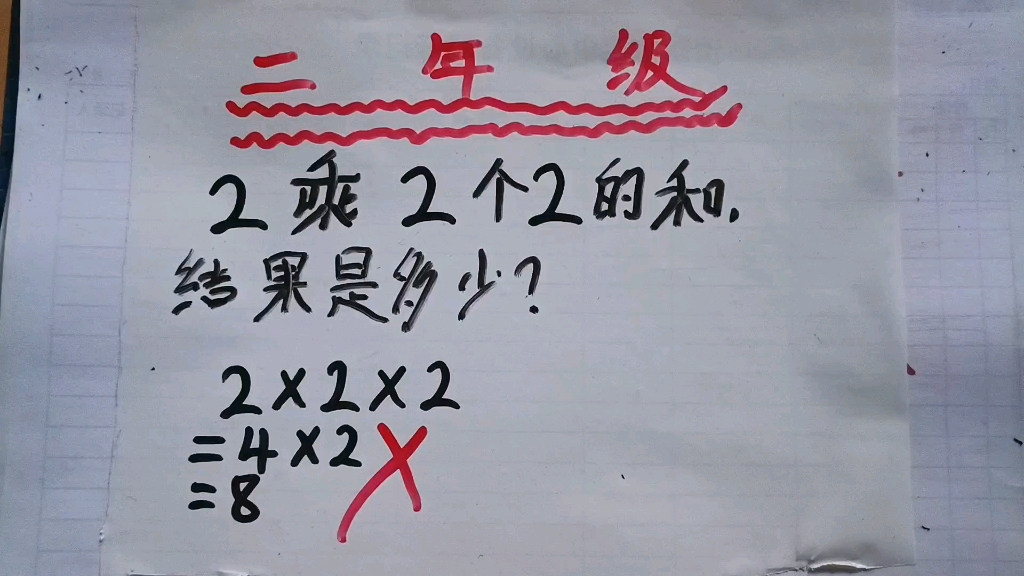 二年级
2乘2个2的和.
结果是多少?
2×2×2
=4×2
=8